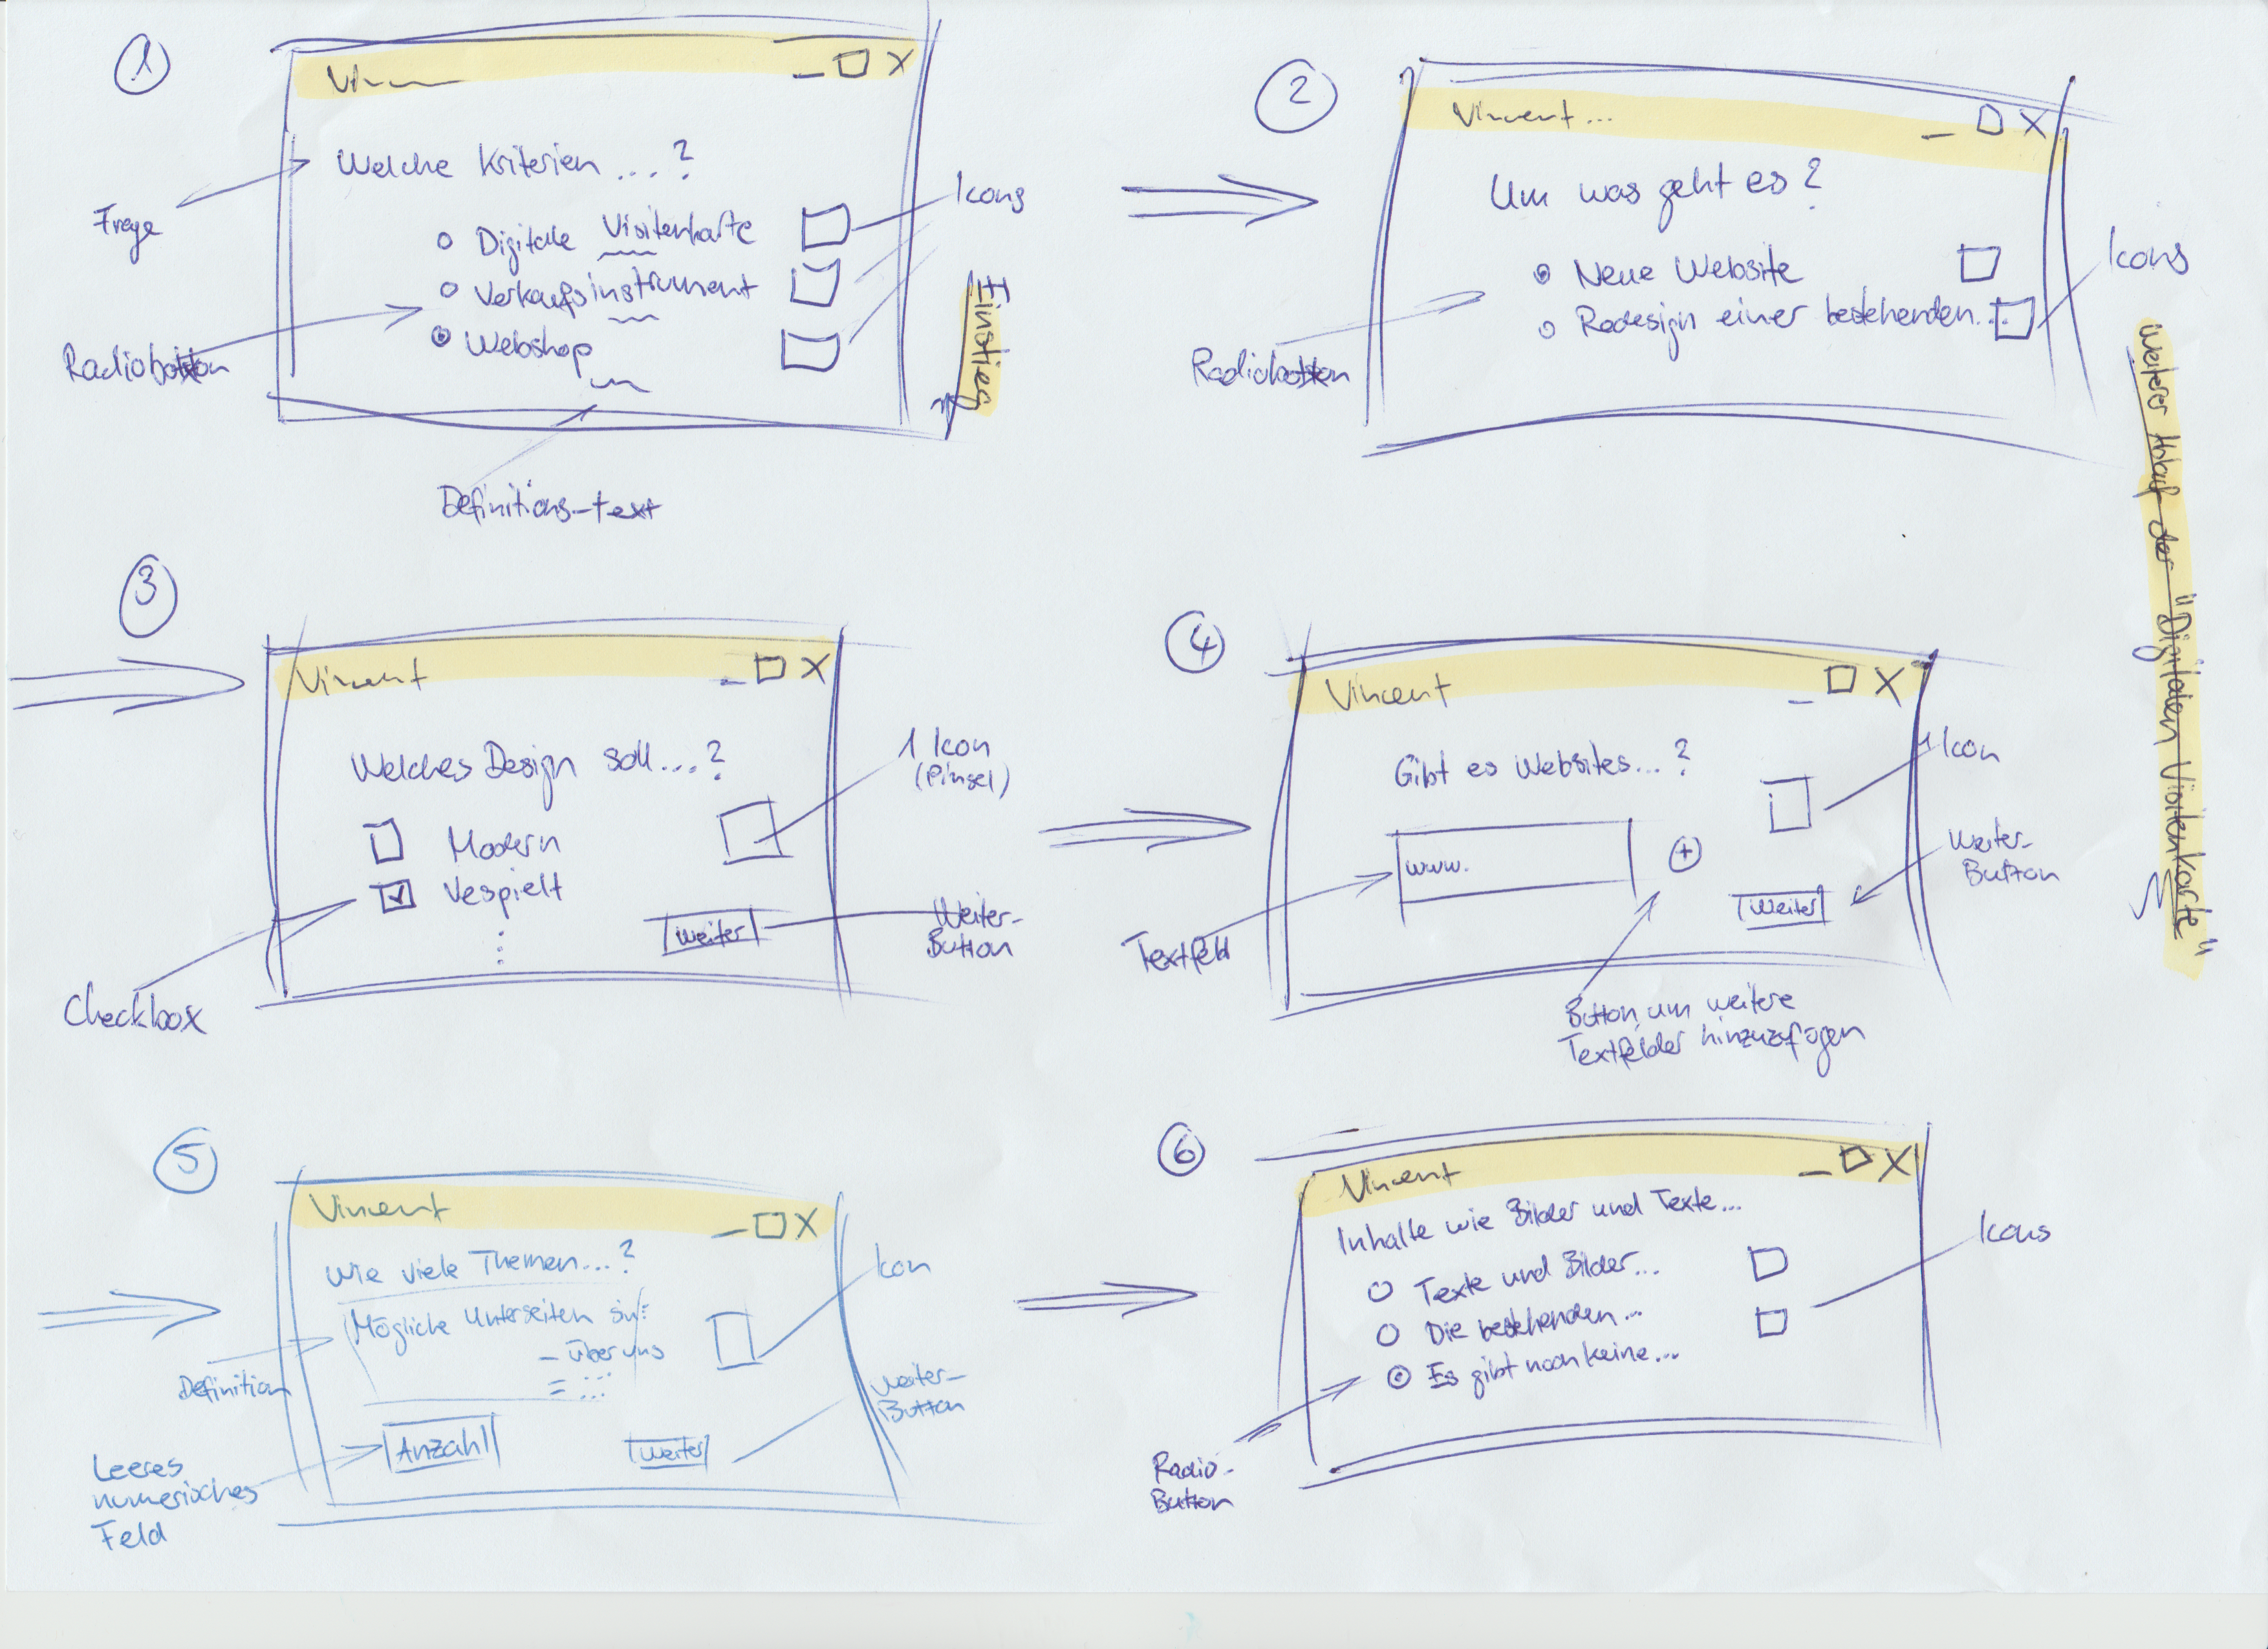 1
Vin
_ □ X
Welche Kriterien ...?
Frage
Icons
Digitale Visitenkarte
Verkaufsinstrument
Webshop
Radiobutton
Definitions-text
Einstieg
2
Vincent ...
_ □ X
Um was geht es?
Neue Website
Redesign einer bestehenden...
Icons
Radiobutton
Weiterer Ablauf der "Digitalen Visitenkarte"
3
Vincent
_ □ X
Welches Design soll...?
Modern
Vespielt
1 Icon
(Pinsel)
Weiter
Weiter-
Button
Checkbox
4
Vincent
_ □ X
Gibt es Websites...?
1 Icon
www.
+
Weiter
Weiter-
Button
Textfeld
Button, um weitere
Textfelder hinzuzufügen
5
Vincent
_ □ X
Wie viele Themen...?
Mögliche Unterseiten sin:
- über uns
- ...
Icon
Definition
Anzahl
Weiter
Weiter-
Button
Leeres
numerisches
Feld
6
Vincent
_ □ X
Inhalte wie Bilder und Texte...
Texte und Bilder...
Die bestehenden...
Es gibt noch keine...
Icons
Radio-
Button